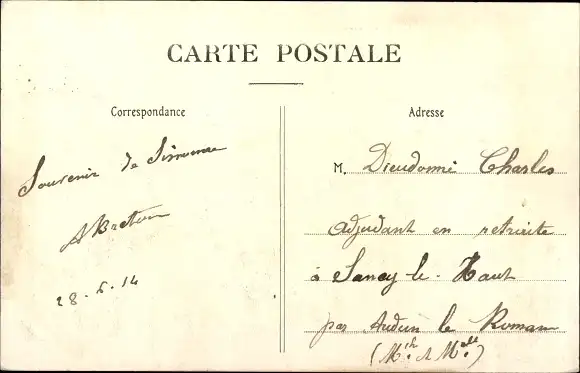 CARTE POSTALE
Correspondance
Adresse
Souvenir de Simonne
A Breton
28.6.14
M. Dieudonné Charles
adjudant en retraite
à Sancy-le-Haut
par Audun le Roman
(M.the & M.elle)